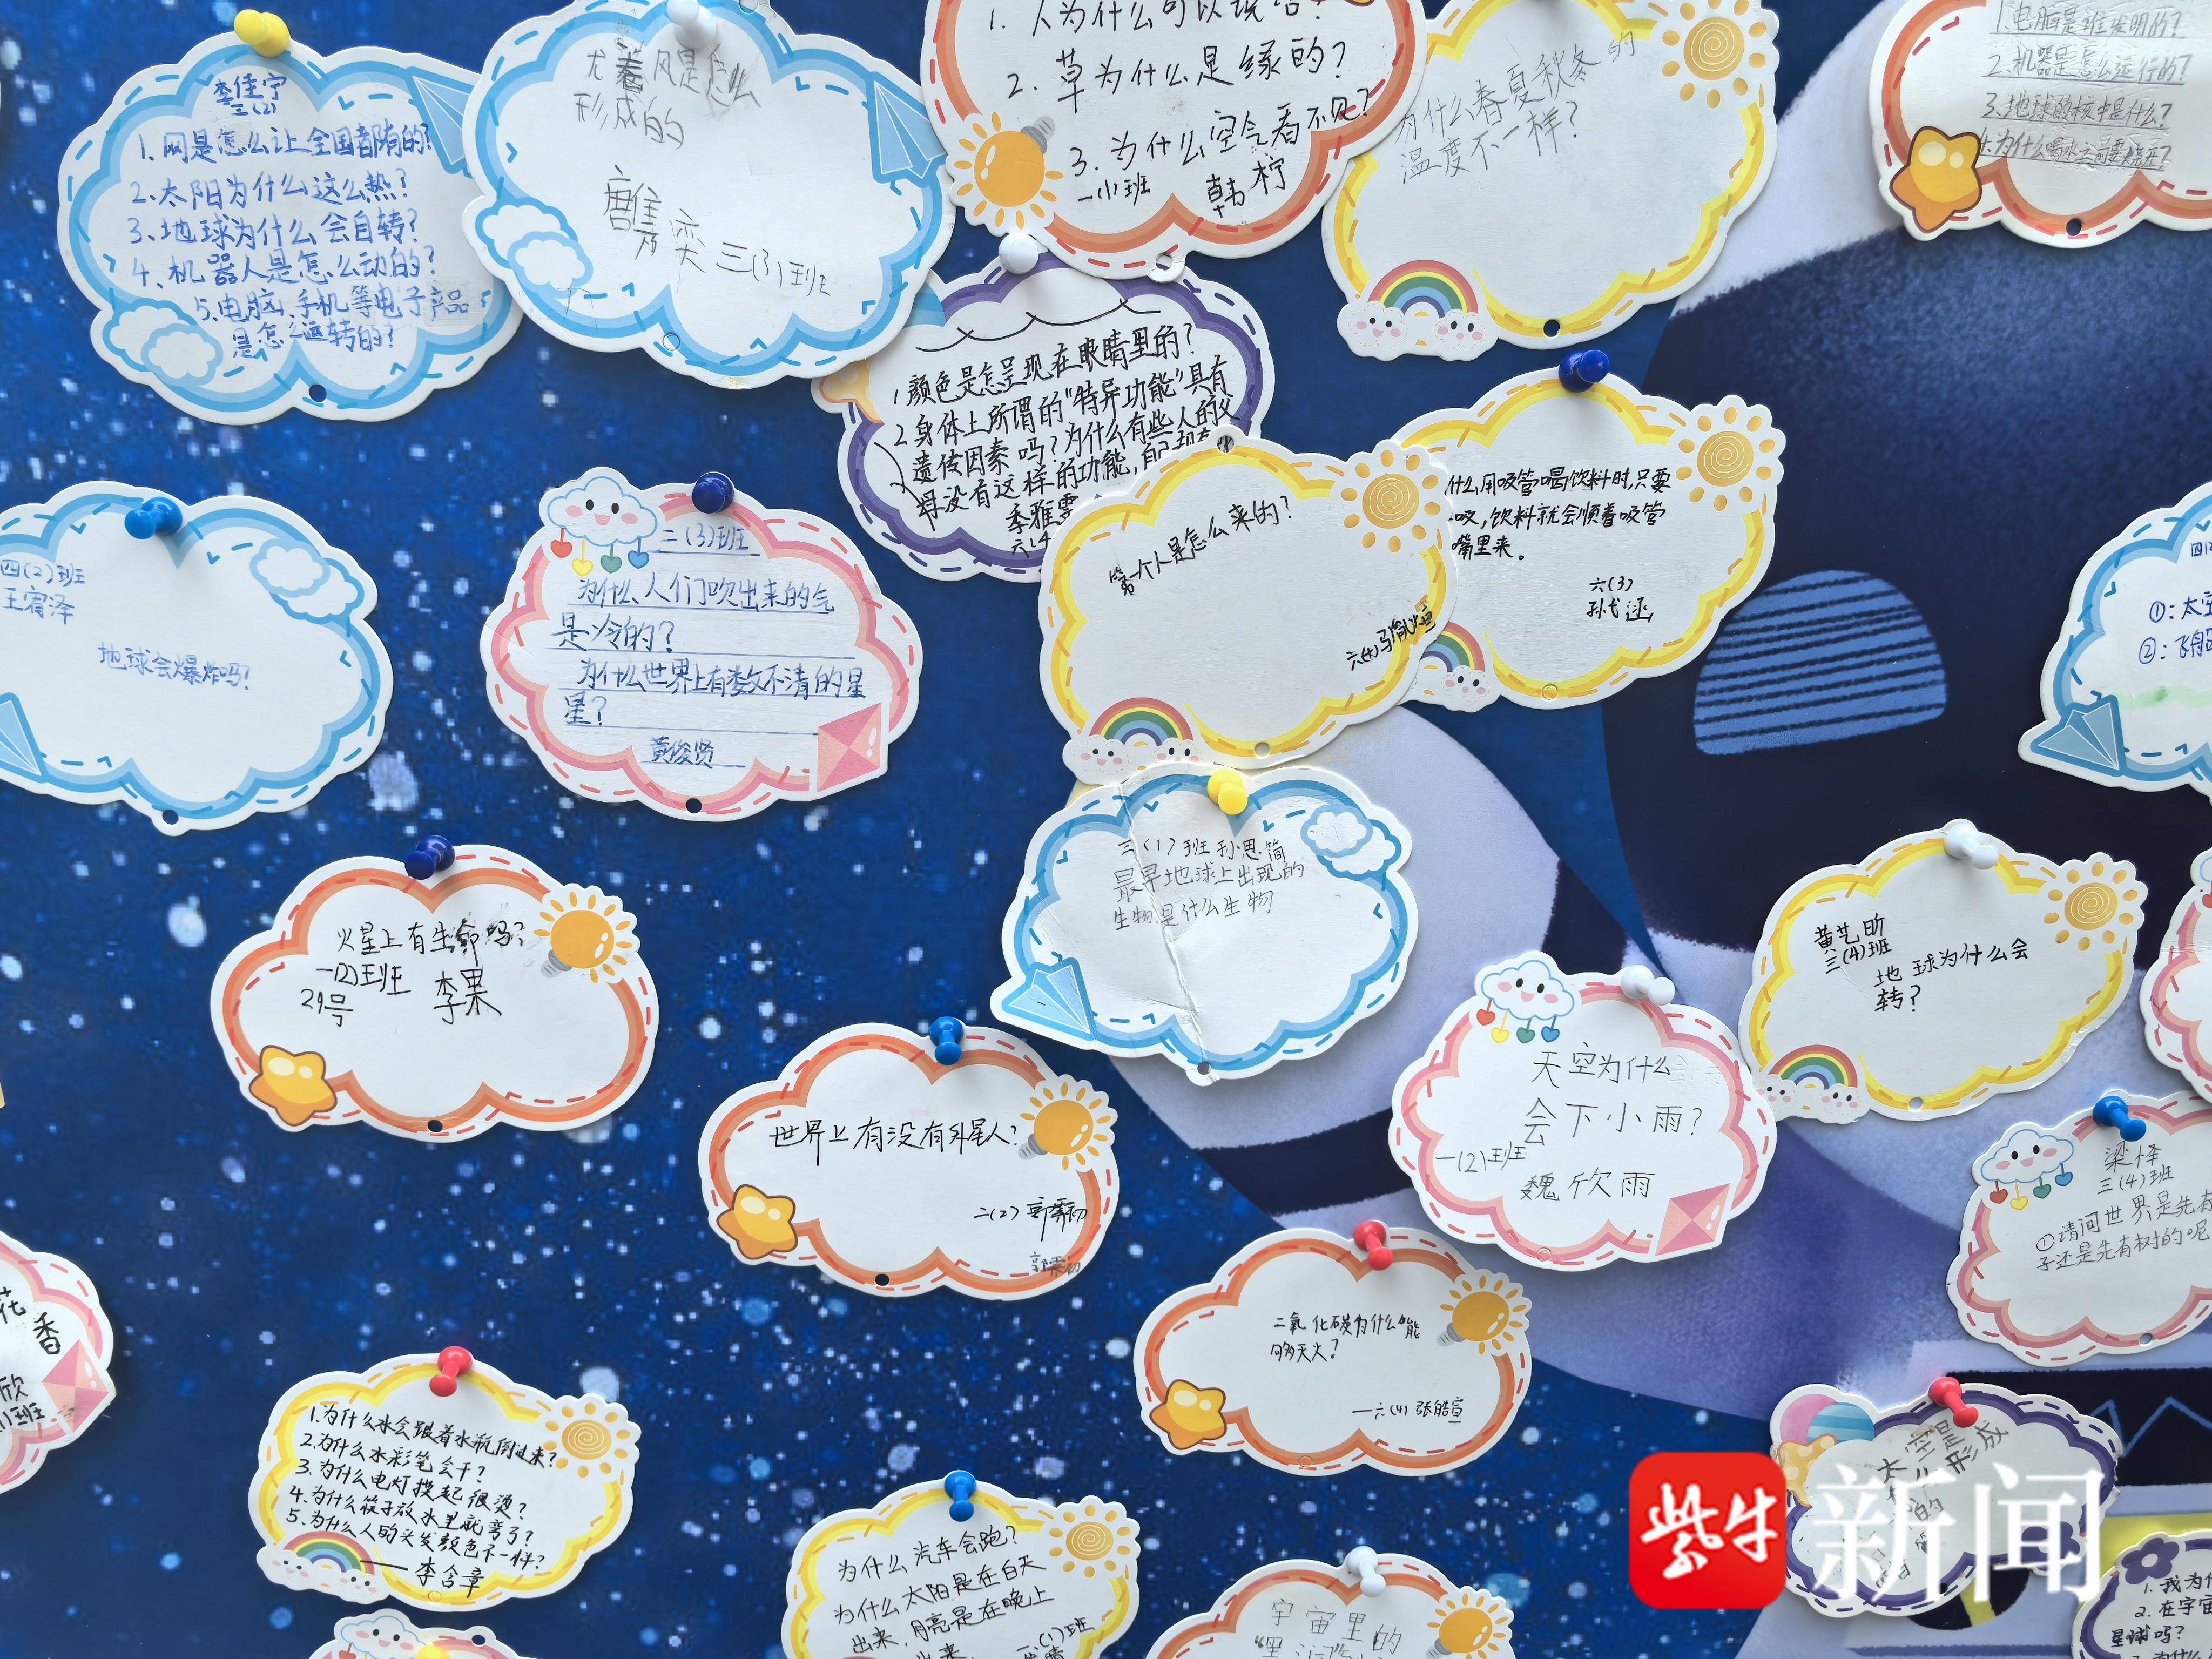 李佳宁
三(2)
1、网是怎么让全国都有的?
2、太阳为什么这么热?
3、地球为什么会自转?
4、机器人是怎么动的?
5、电脑、手机等电子产品
是怎么运转的?
风是怎么
形成的
三(3)班
1. 人为什么可以说
2. 草为什么是绿的?
3. 为什么空气看不见?
一小班
韩柠
为什么春夏秋冬的
温度不一样?
1.电脑是谁发明的?
2.机器是怎么运行的?
3.地球的核中是什么?
4.为什么喝水之前要烧开?
1 颜色是怎呈现在眼睛里的?
2 身体上所谓的"特异功能"具有
遗传因素吗?为什么有些人的父
母没有这样的功能,自己却有
季雅雯
六(4
什么用吸管喝饮料时,只要
吸,饮料就会顺着吸管
嘴里来。
六(3)
第一个人是怎么来的?
六(4)
四(2)班
王宥泽
地球会爆炸吗?
二(3)班
为什么人们吹出来的气
是冷的?
为什么世界上有数不清的星
星?
黄俊贤
①:太空
②:飞船
三(1)班 孙思简
最早地球上出现的
生物是什么生物
火星上有生命吗?
一(2)班
29号
李果
黄艺昕
三(4)班
地球为什么会
转?
天空为什么
会下小雨?
一(2)班
魏欣雨
世界上有没有外星人?
二(2)
梁怿
三(4)班
①请问世界是先有
子还是先有树的呢
二氧化碳为什么能
够灭火?
—六(4) 张皓萱
花
香
欣
(1)班
1.为什么水会跟着水瓶倒过来?
2.为什么水彩笔会干?
3.为什么电灯摸起很烫?
4.为什么筷子放水里就弯了?
5.为什么人的头发颜色不一样?
——李含章
为什么汽车会跑?
为什么太阳是在白天
出来,月亮是在晚上
出来
(1)班
宇宙里的
太空是
形成
的
1. 我为什
2. 在宇宙
星球吗?
紫牛
新闻